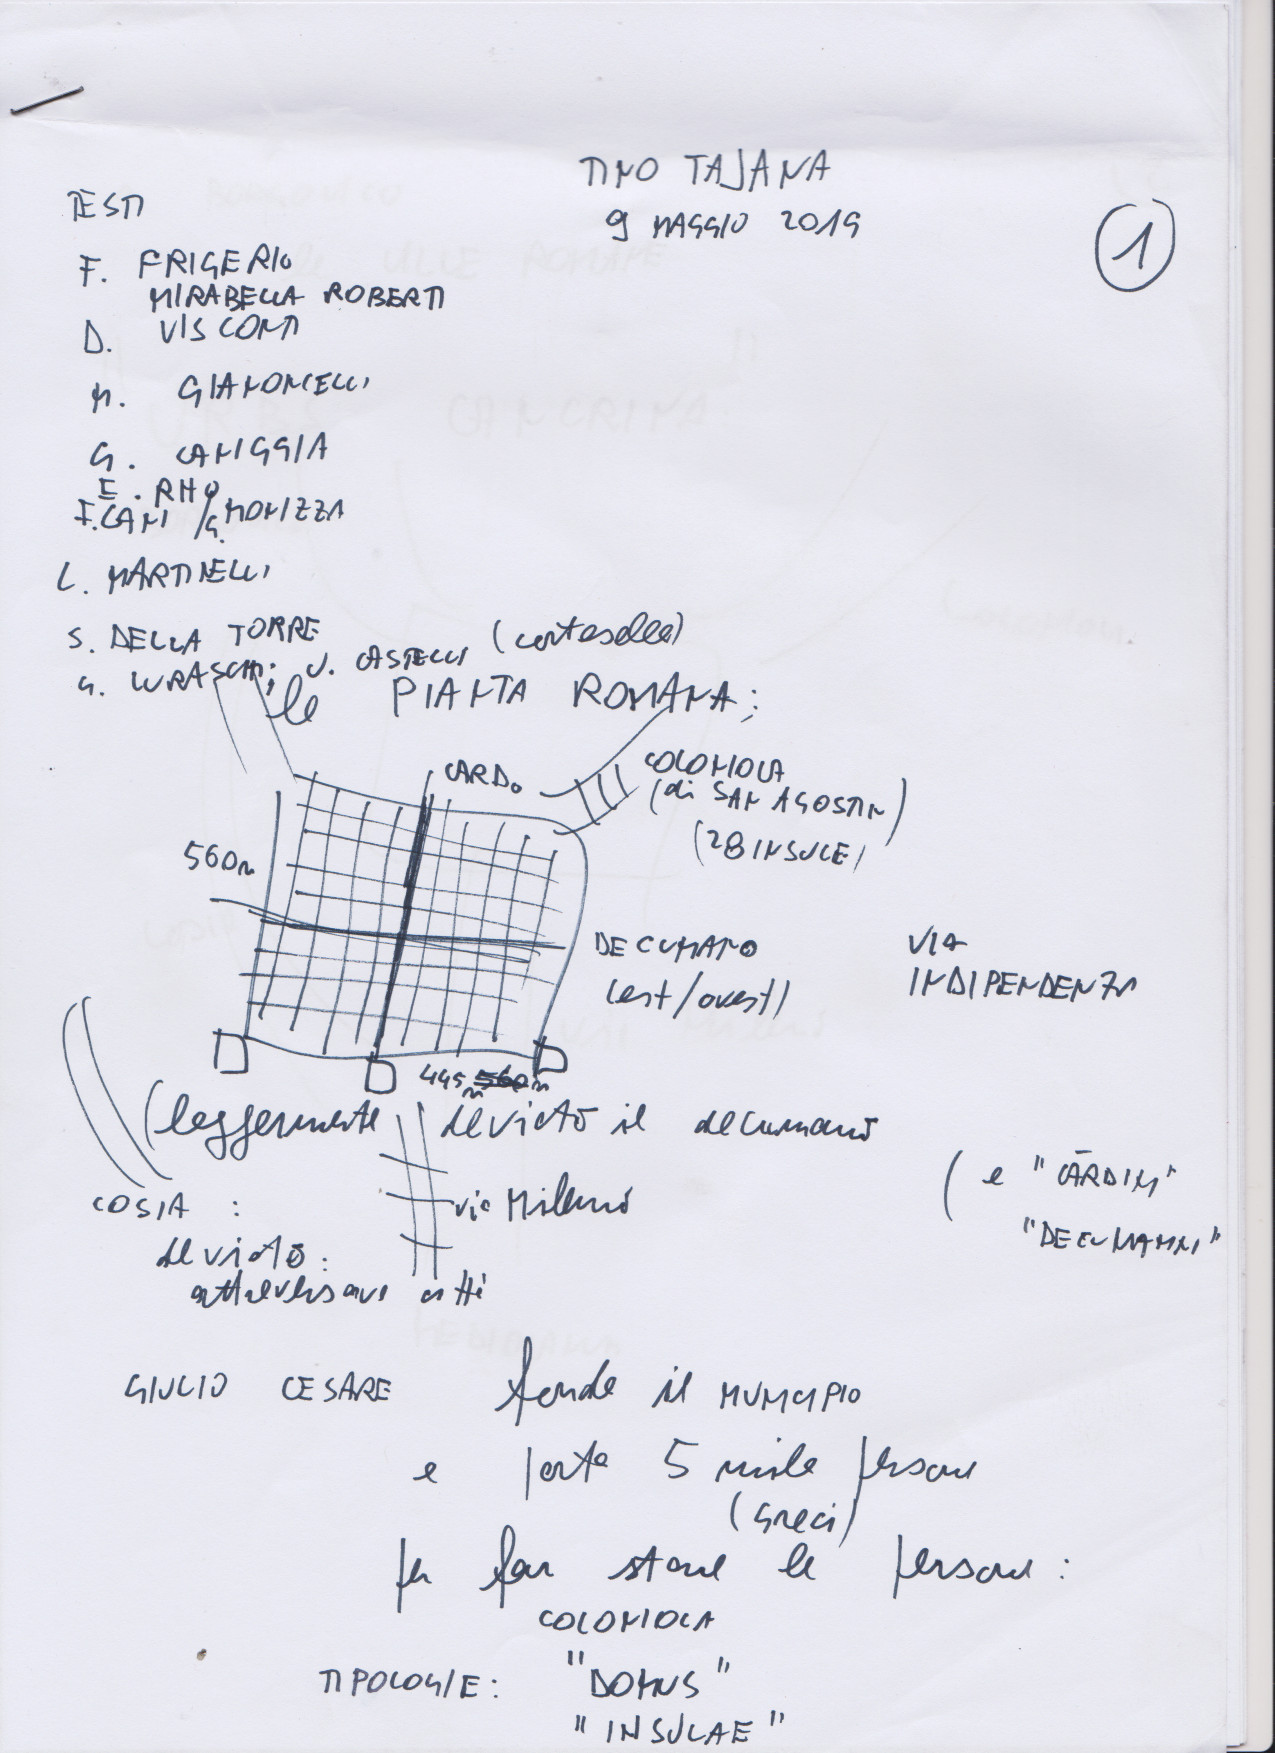 TINO TAJANA
9 MAGGIO 2019
1
TESTI
F. FRIGERIO
MIRABELLA ROBERTI
D. VISCONTI
M. GIANONCELLI
G. CANIGGIA
E. RHO
F. CANI / G. MONIZZA
L. MARTINELLI
S. DELLA TORRE
G. LURASCHI; V. CASTELLI (cortesella)
la PIANTA ROMANA:
CARDO
COLONIOLA
(di SAN AGOSTIN)
(28 INSULE)
560 m
DECUMANO
(est/ovest)
VIA
INDIPENDENZA
445 m 560 m
(leggermente deviato il decumano
(e "CARDINI"
"DECUMANNI"
COSIA :
via Milano
deviato:
attraversava città
GIULIO CESARE fonda il MUNICIPIO
e porta 5 mila persone
(Greci)
per far stare le persone:
COLONIOLA
TIPOLOGIE: "DOMUS"
"INSULAE"